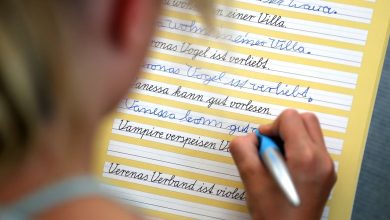 einer Villa
einer Villa.
ronas Vogel ist verliebt.
ronas Vogel ist verliebt.
anessa kann gut vorlesen
Vanessa kann gut
Vampire verspeisen V
Verenas Verband ist violet